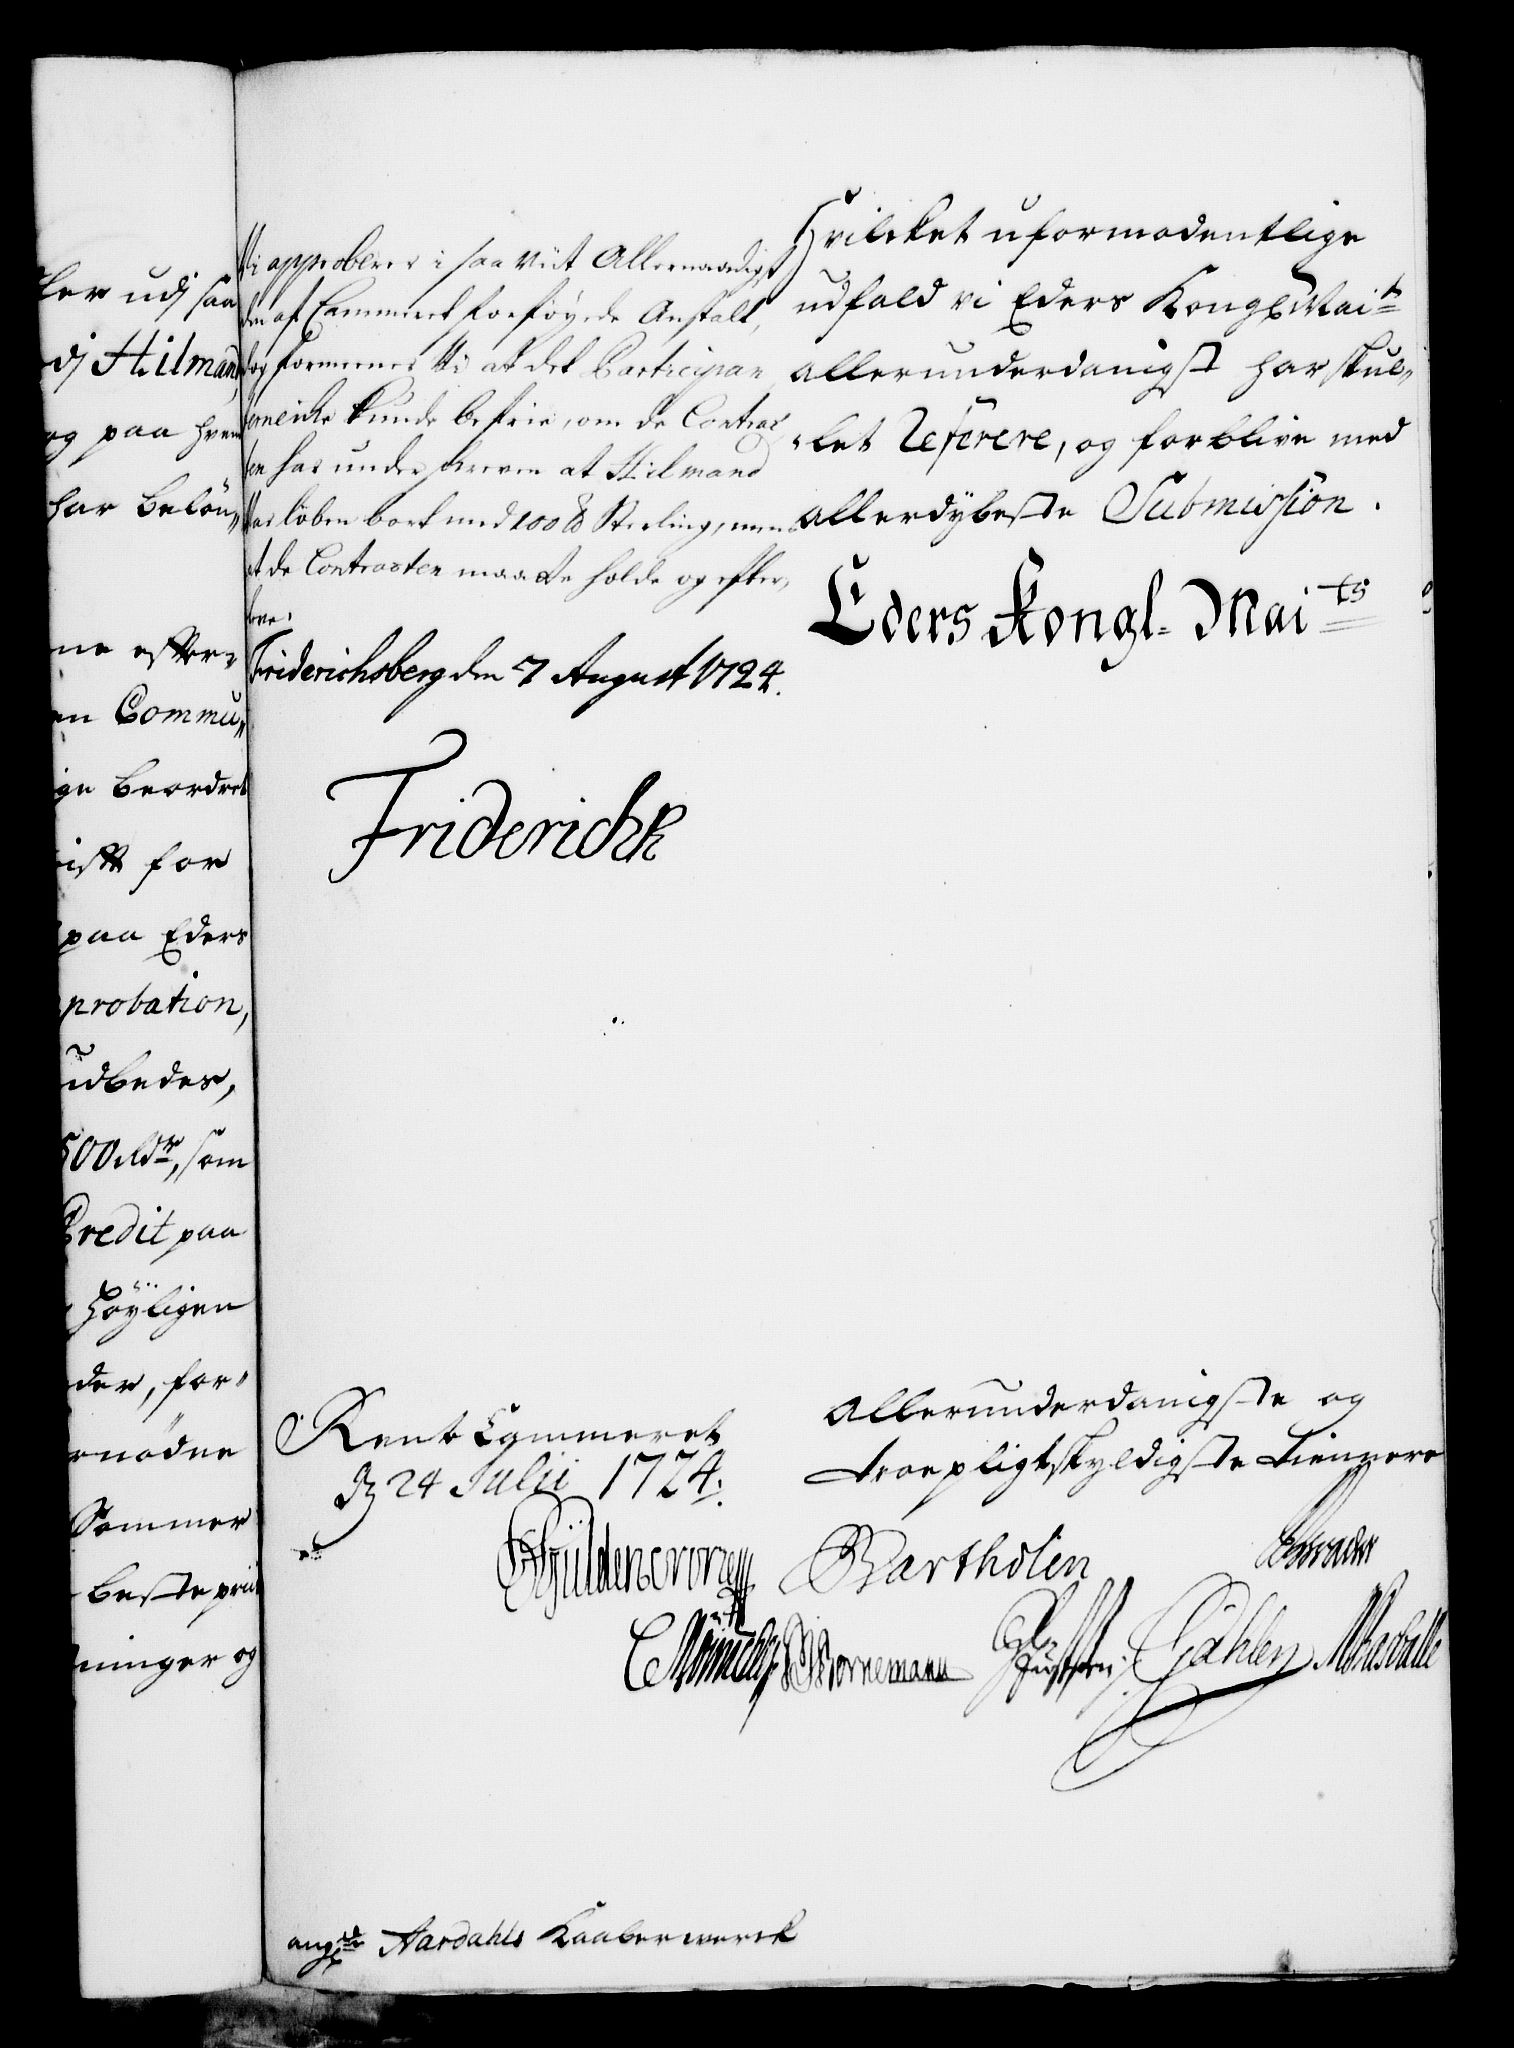 ker udj saa
dj Hilmand,
og paa hvem
har belön„
ne efter=
en Commu„
ige beordret
for
paa Eders
probation,
udbedes,
500 Rdr, som
Credit paa
höyligen
der, for=
nödne
Sommer
beste priis
ninger og
Vi approberer i saa viit Allernaadigst
den af Cammeret forföyede Anstalt,
og formeener Vi at det Participan
terneicke kunde befrie, om de Contrac
ten har underskreven at Hilmand
var löben bort med 100 lb Sterling, men
at de Contracten maatte holde og efter„
leve.
Friderichsberg den 7 August 1724.
Friderich R
Hvilcket uformodentlige
udfald vi Eders Kongl. Maits
allerunderdanigst har skul„
„let Referere, og forblive med
allerdybeste Submission.
Eders Kongl. Maits
Rente Cammeret
d 24 Julii 1724.
allerunderdanigste og
troepligtskyldigste tiennere
Güldencrone
Bartholin
Schrader
C Münich
Bornemann
Gählen
ang.de Aardahls Kaaberwerck